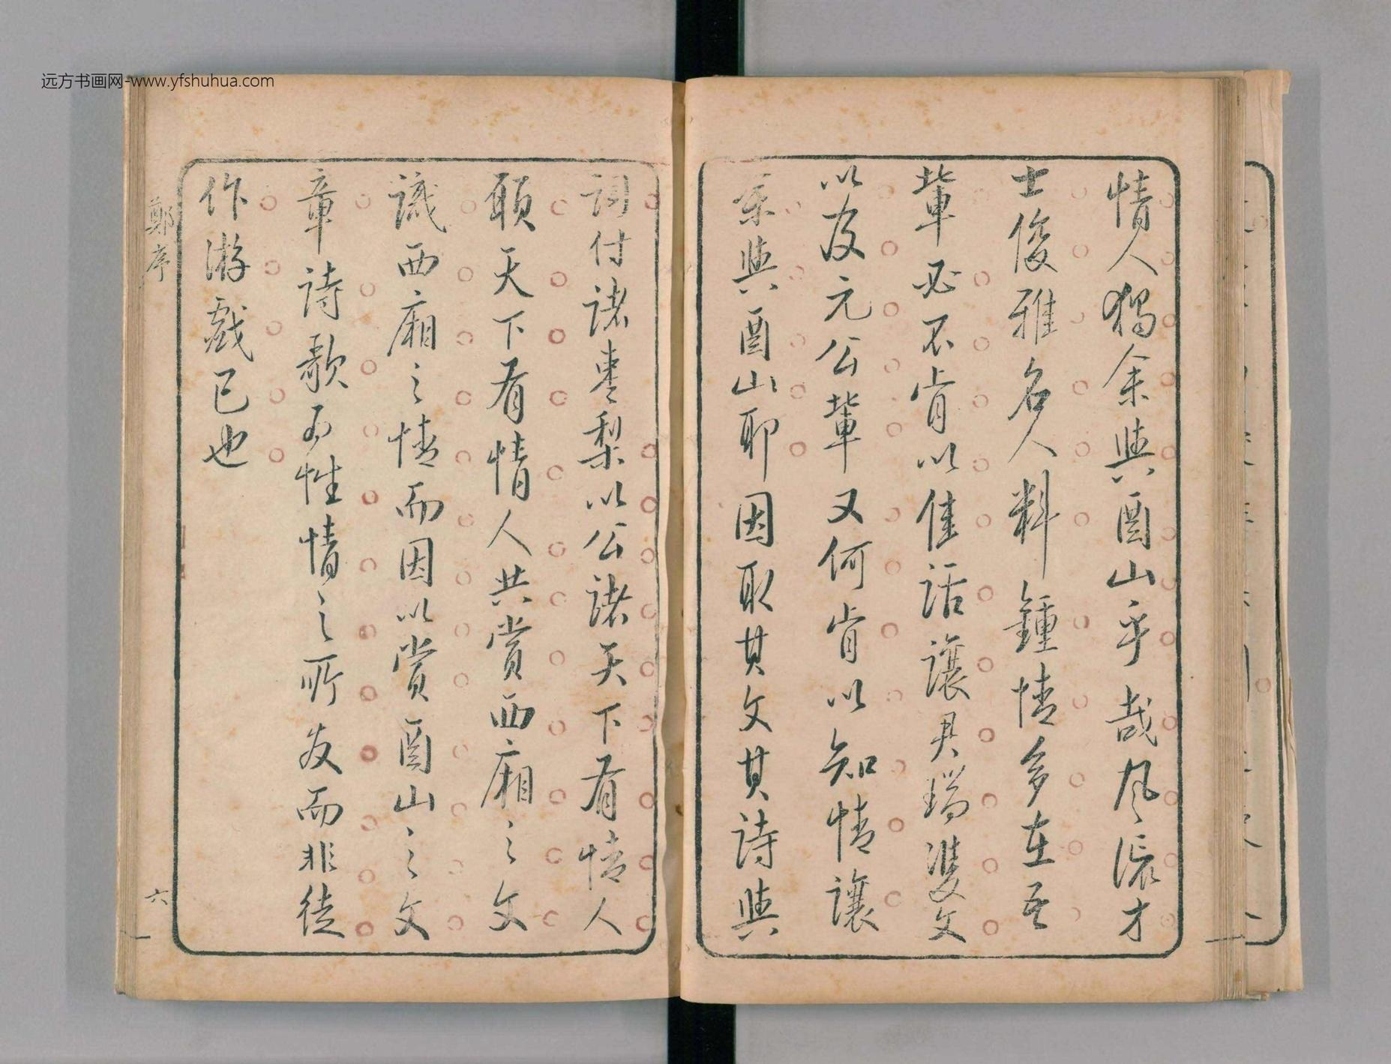 远方书画网-www.yfshuhua.com
情人獨余與酉山乎哉風流才
士俊雅名人料鍾情多在吾
輩必不肯以佳話讓君瑞雙文
以及元公輩又何肯以知情讓
與酉山耶因取其文其詩與
詞付諸棗梨以公諸天下有情人
願天下有情人共賞西廂之文
識西廂之情而因以賞酉山之文
章詩歌為性情之所發而非徒
作游戲已也
鄭序
六